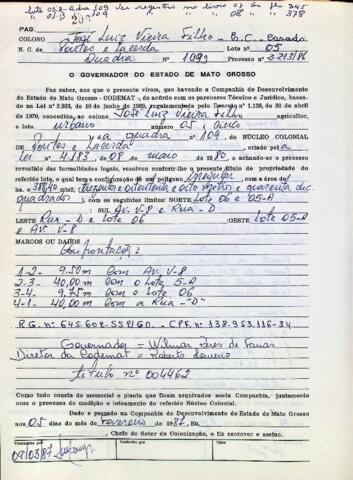 Lote 05-A-Qdra 109 Ver registro no livro 07 às fls 345
05-B " 109 " " " 08 " " 378
PAG.
COLONO José Luiz Vieira Filho B.C. Casado
N. C. de Pontes e Lacerda Lote nº 05
Quadra Nº 109 Processo nº 2293/86
O GOVERNADOR DO ESTADO DE MATO GROSSO
Faz saber, aos que o presente virem, que havendo a Companhia de Desenvolvimento
do Estado de Mato Grosso - CODEMAT -, de acordo com os pareceres Técnico e Jurídico, basea-
dos na Lei nº 2.303, de 10 de junho de 1960, regulamentada pelo Decreto nº 1.138, de 30 de abril
de 1970, concedido ao colono José Luiz Vieira Filho agricultor,
o lote urbano nº 05, cinco
quadra nº 109, do NÚCLEO COLONIAL
de Pontes e Lacerda, criado pela
Lei 4.183, de 08 de maio de 1980, e achando-se o processo
revestido das formalidades legais, resolveu conferir-lhe o presente título de propriedade
referido lote, o qual tem a configuração de um polígono irregular, com a área de
ha. 388,40 mts2, trezentos e oitenta e oito metros e quarenta dic.
quadrados), com os seguintes limites: NORTE Lote 06 e 05-A
: SUL Av. V-8 e Rua - D
LESTE Rua - D e Lote 06 :OESTE Lote 05-A
e Av. V-8
MARCOS OU DADOS
Confrontações:
1-2- 9.50m Com Av. V-8
2-3- 40,00m com o Lote 5-A
3-4- 9.75m com o Lote 06
4-1- 40,00m com a Rua -"D"
R.G. nº 645.602-SSP/GO. - CPF. nº 138.953.116-34
Governador = Wilmar Peres de Farias
Diretor da Codemat = Roberto
título nº 004462
Como tudo consta do memorial e planta que ficam arquivados nesta Companhia, juntamente
com o processo de medição e loteamento do referido Núcleo Colonial.
Dado e passado na Companhia de Desenvolvimento do Estado de Mato Grosso
aos 05 dias do mês de Fevereiro de 1987. Eu,
, Chefe do Setor de Colonização, o fiz escrever e assino.
Transcrito por
Conferido
Visto
09/03/87